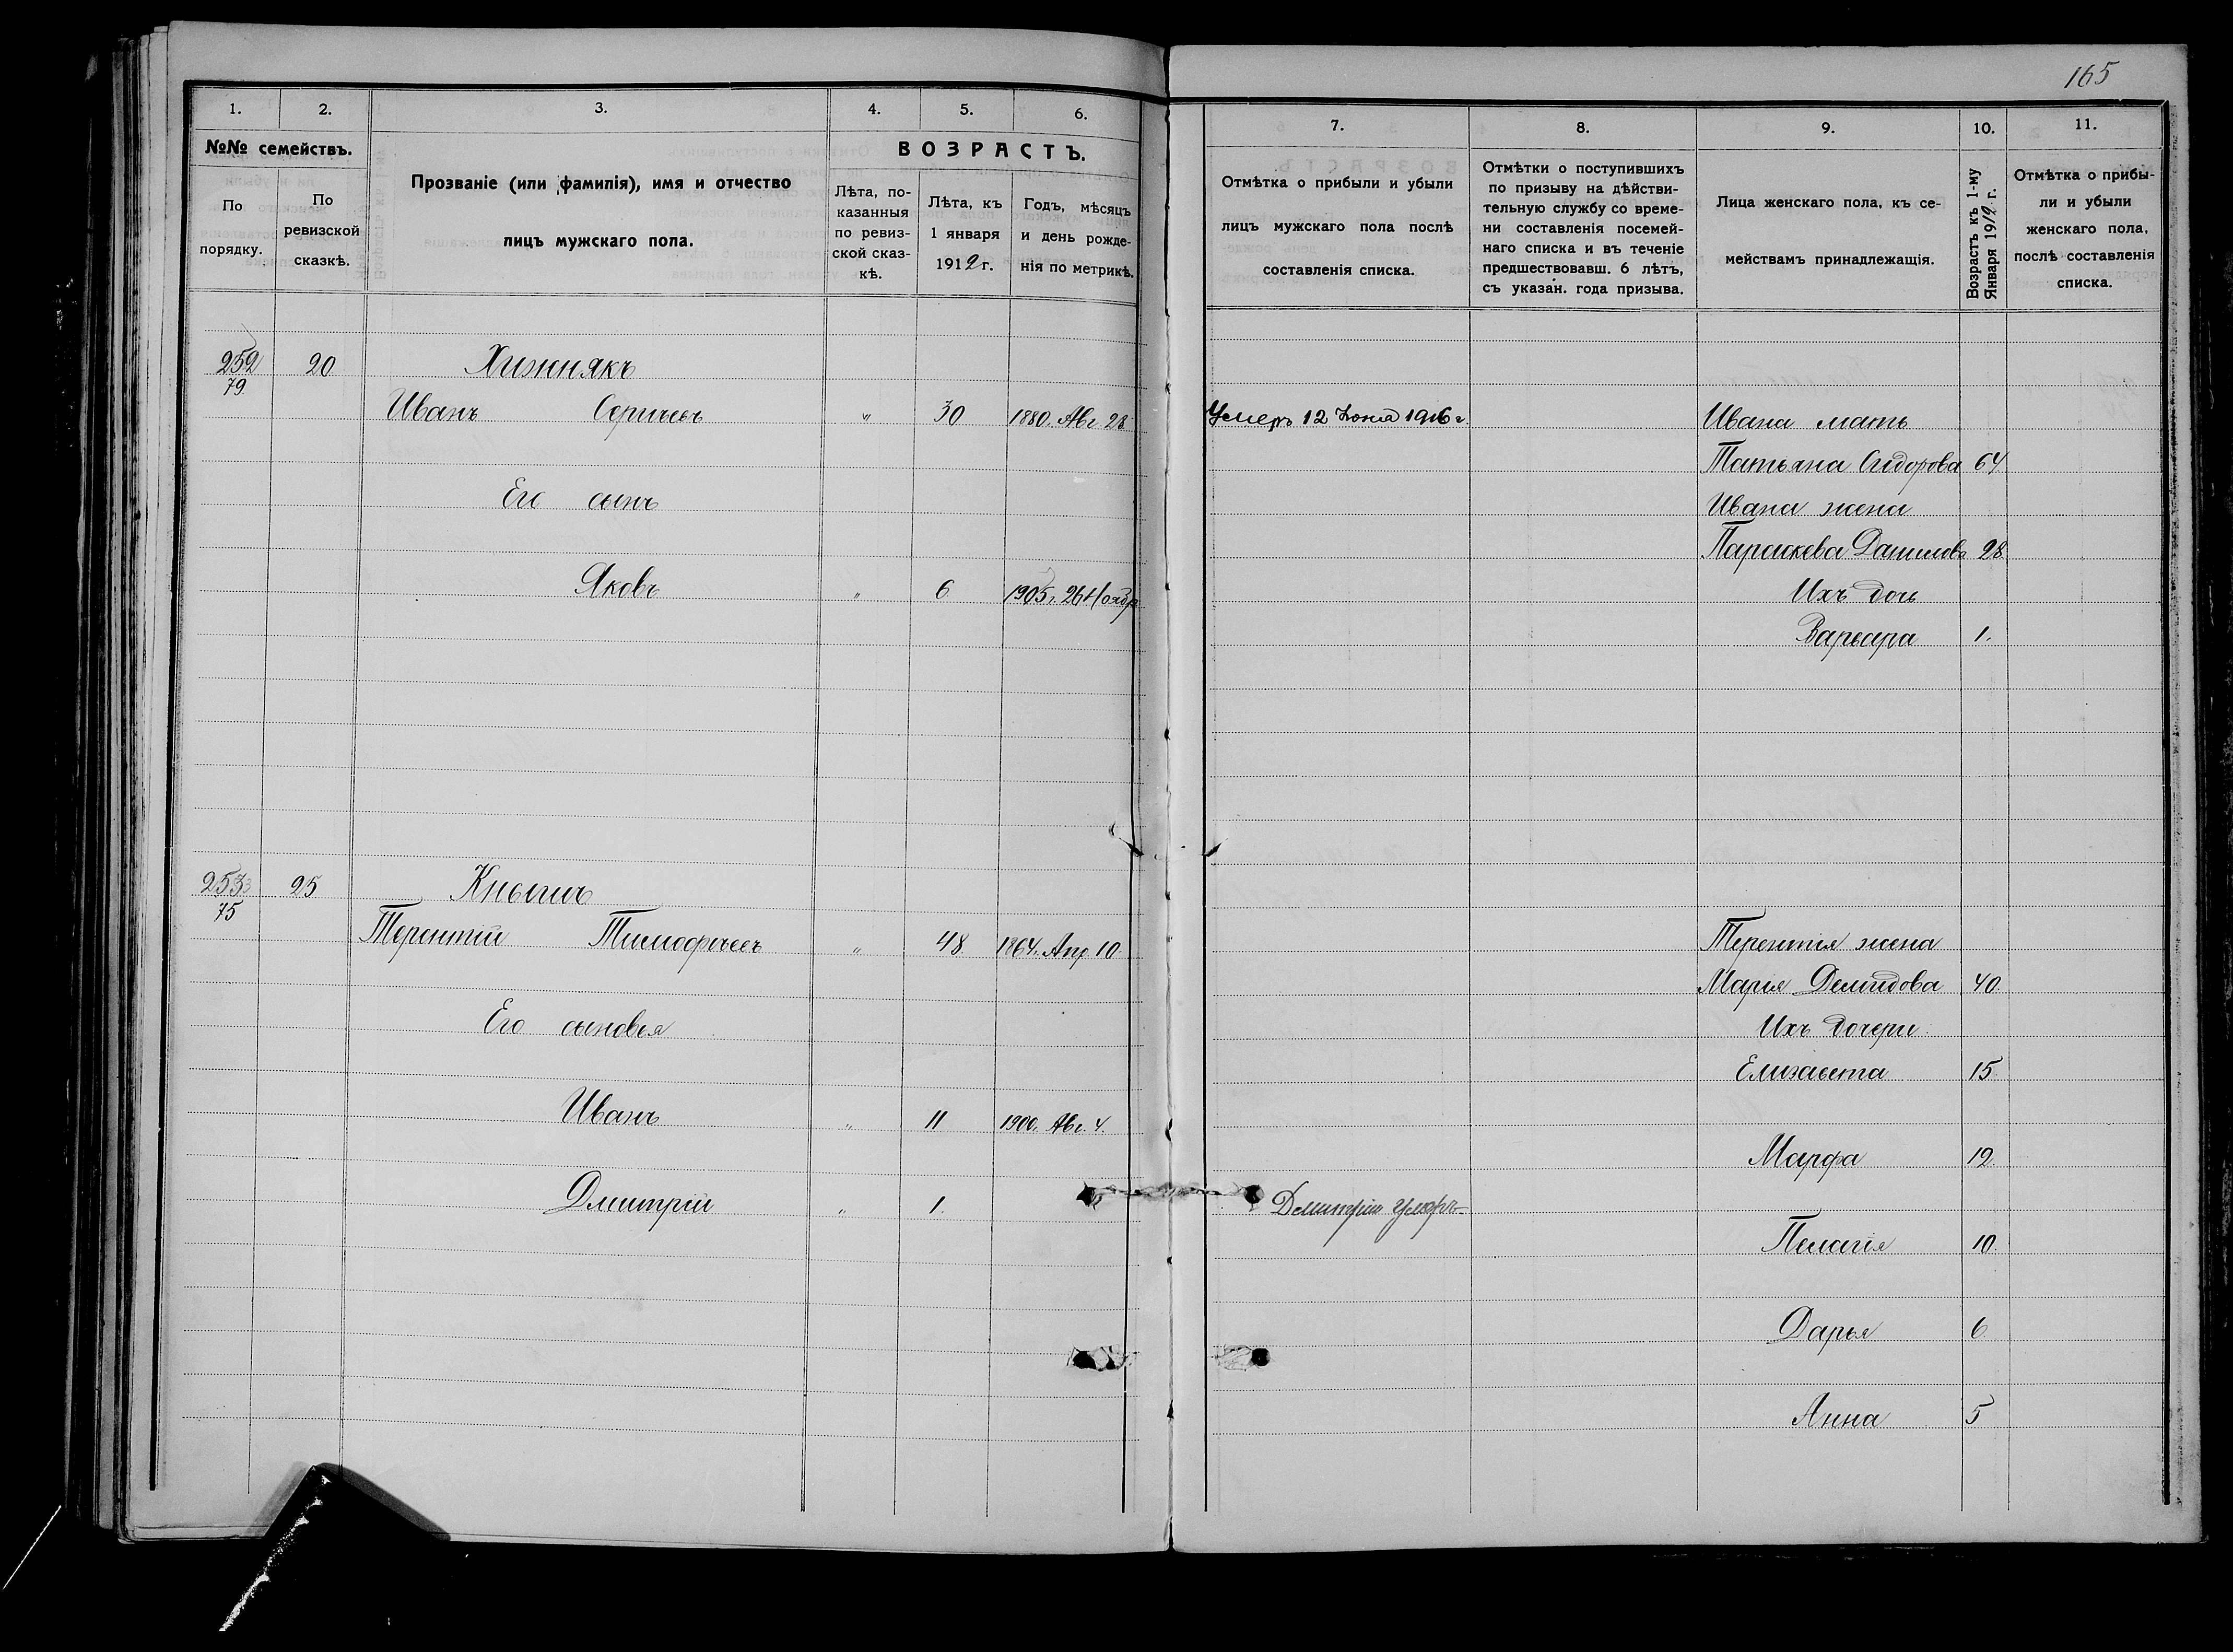 165
1. 2. 3. 4. 5. 6.
№№ семействъ.
По порядку.
По ревизской сказкѣ.
Прозваніе (или фамилія), имя и отчество
лицъ мужскаго пола.
ВОЗРАСТЪ.
Лѣта, по-
казанныя
по ревиз-
ской сказ-
кѣ.
Лѣта, къ
1 января
1912 г.
Годъ, мѣсяцъ
и день рожде-
нія по метрикѣ.
252 20 Хижнякъ
79
Иванъ " 30 1880. Авг 28
Его сынъ
Яковъ " 6 1905 г. 26 Ноябр
253 25 Кнышъ
75
Терентій Тимофеевъ " 48 1864. Апр 10
Его сыновья
Иванъ " 11 1900. Авг. 4.
Дмитрій " 1.
7. 8. 9. 10. 11.
Отмѣтка о прибыли и убыли
лицъ мужскаго пола послѣ
составленія списка.
Отмѣтки о поступившихъ
по призыву на дѣйстви-
тельную службу со време-
ни составленія посемей-
наго списка и въ теченіе
предшествовавш. 6 лѣтъ,
съ указан. года призыва.
Лица женскаго пола, къ се-
мействамъ принадлежащія.
Возрастъ къ 1-му
Января 1912 г.
Отмѣтка о прибы-
ли и убыли
женскаго пола,
послѣ составленія
списка.
Умеръ 12 1916 г. Ивана мать
Татьяна Сидорова 64
Ивана жена
Параскева Данилова 28
Ихъ дочь
Варвара 1.
Терентія жена
Марія Демидова 40
Ихъ дочери
Елизавета 15
Марфа 12
Дмитрій умеръ
Пелагія 10
Дарья 6
Анна 5